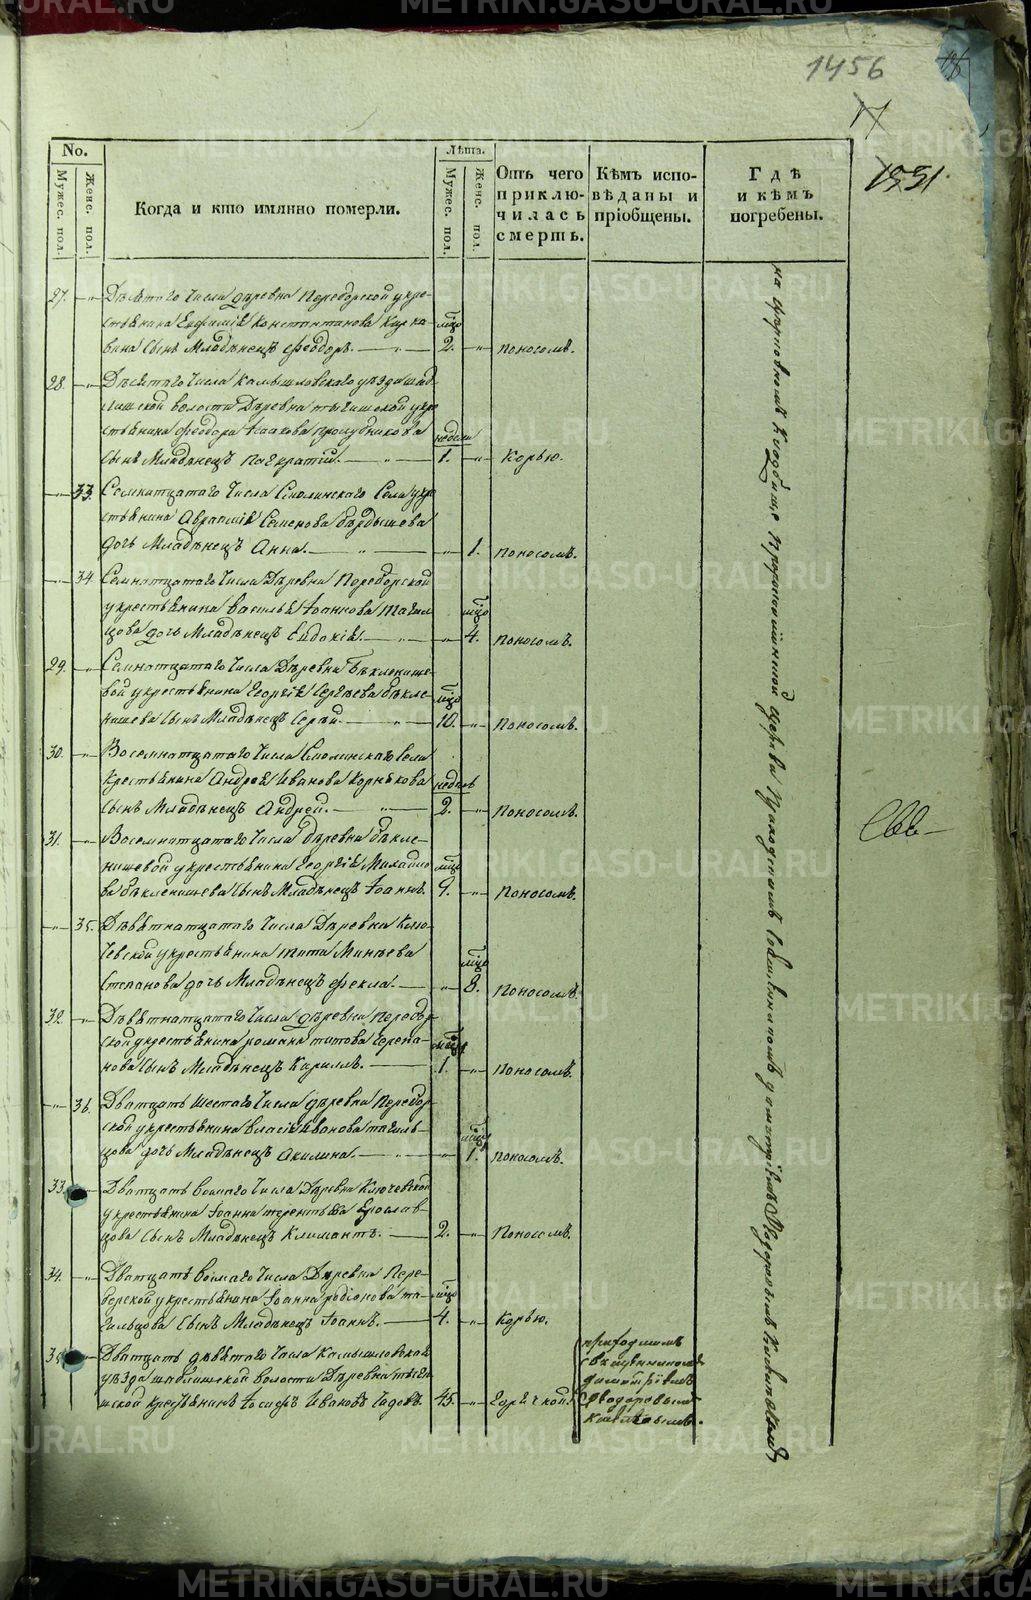 METRIKI.GASO-URAL.RU
1456
1551.
No.
Мужес. пол.
Женс. пол.
Когда и кто имянно померли.
Лѣта.
Мужес. пол.
Женс. пол.
Отъ чего приключилась смерть.
Кѣмъ исповѣданы и пріобщены.
Гдѣ и кѣмъ погребены.
27. Десятаго Числа деревни Переборской у кре-
стьянина Евфимія Константинова
сынъ Младѣнецъ Феодоръ. мцо 2. поносомъ.
28. Десятаго Числа Камышловскаго уезда
волости Деревни у кре
стьянина Феодора Исаакова Прозубникова недели
Сынъ Младѣнецъ Панкратій. 1. Корью.
33. Семнатцатаго Числа Смолинскаго Села у кре
стьянина Семенова Бердышова
дочь Младѣнецъ Анна. 1. поносомъ.
34. Семнатцатаго Числа Деревни Переборской
у крестьянина Василья Иоаннова Тагил мцо
цова дочь Младѣнецъ Евдокія. 4. поносомъ.
29. Семнатцатаго Числа Деревни Бекленище-
вой у крестьянина Георгія Сергѣева Бекле- мцо
нищева Сынъ Младѣнецъ Сергій. 10. Поносомъ.
30. Восемнатцатаго Числа Смолинскаго Села
крестьянина Андрея Иванова Корнякова недель
Сынъ Младѣнецъ Андрей. 2. Поносомъ.
31. Восемнатцатаго Числа Деревни Бекле-
нищевой у крестьянина Георгія Михайло мцо
ва Бекленищева Сынъ Младѣнецъ Іоаннъ. 9. Поносомъ.
35. Девѣтнатцатаго Числа Деревни Клю-
чевской у крестьянина Тита Минѣева мцо
Степанова дочь Младѣнецъ Фекла. 8. Поносомъ.
32. Девѣтнатцатаго Числа деревни Перебор
ской у крестьянина Романа Титова Черепа-
нова Сынъ Младѣнецъ Кириллъ. 1. Поносомъ.
36. Дватцать шестаго Числа деревни Перебор
ской у крестьянина Власія Иванова Тагиль- мцо
цова дочь Младѣнецъ Акилина. 1. Поносомъ.
33. Дватцать восмаго Числа Деревни Ключевской
у крестьянина Іоанна Терентьева Ерослав-
цова Сынъ Младѣнецъ Климантъ. 2. Поносомъ.
34. Дватцать восмаго Числа Деревни Пере-
борской у крестьянина Іоанна Родіонова Та- мцо
гильцова Сынъ Младѣнецъ Іоаннъ. 4. Корью.
35. Дватцать девѣтаго Числа Камышловскаго
уезда волости Деревни
крестьянинъ Іосифъ Ивановъ 45. Горячкой.
приходскимъ
священникомъ
Димитріемъ
Феодоровымъ
на приходскомъ Кладбище церкви Приходскимъ Священникомъ Димитріемъ Феодоровымъ